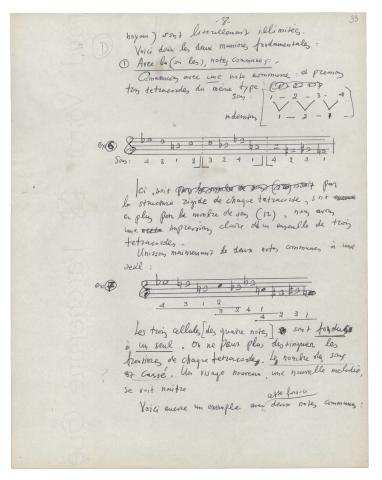 -8-
33
D
noyau) sont littéralement illimitées.
Voici donc les deux manières fondamentales :
① Avec la (ou les) notes communes.
Commençons avec une note commune : et prenons
trois tétracordes du même type :
Sons: 1 - 2 - 3 - 4
1 - 2 - 1
ex 6
Sons: 4 2 3 1 4 2 3 1 4 2 3 1
Ici, soit par
la structure rigide de chaque tétracorde, soit
en plus par le nombre de sons (12), nous avons
une impression claire de un ensemble de trois
tétracordes.
Unissons maintenant les deux notes communes à une
seule :
ex 7
4 3 1 2
Les trois cellules [des quatre notes] sont fondues
à un seul. On ne peut plus distinguer les
frontières de chaque tétracorde. Le nombre de sons
est cassé. Un visage nouveau, une nouvelle mélodie,
se voit naître
cette fois-ci
Voici encore un exemple avec deux notes communes :